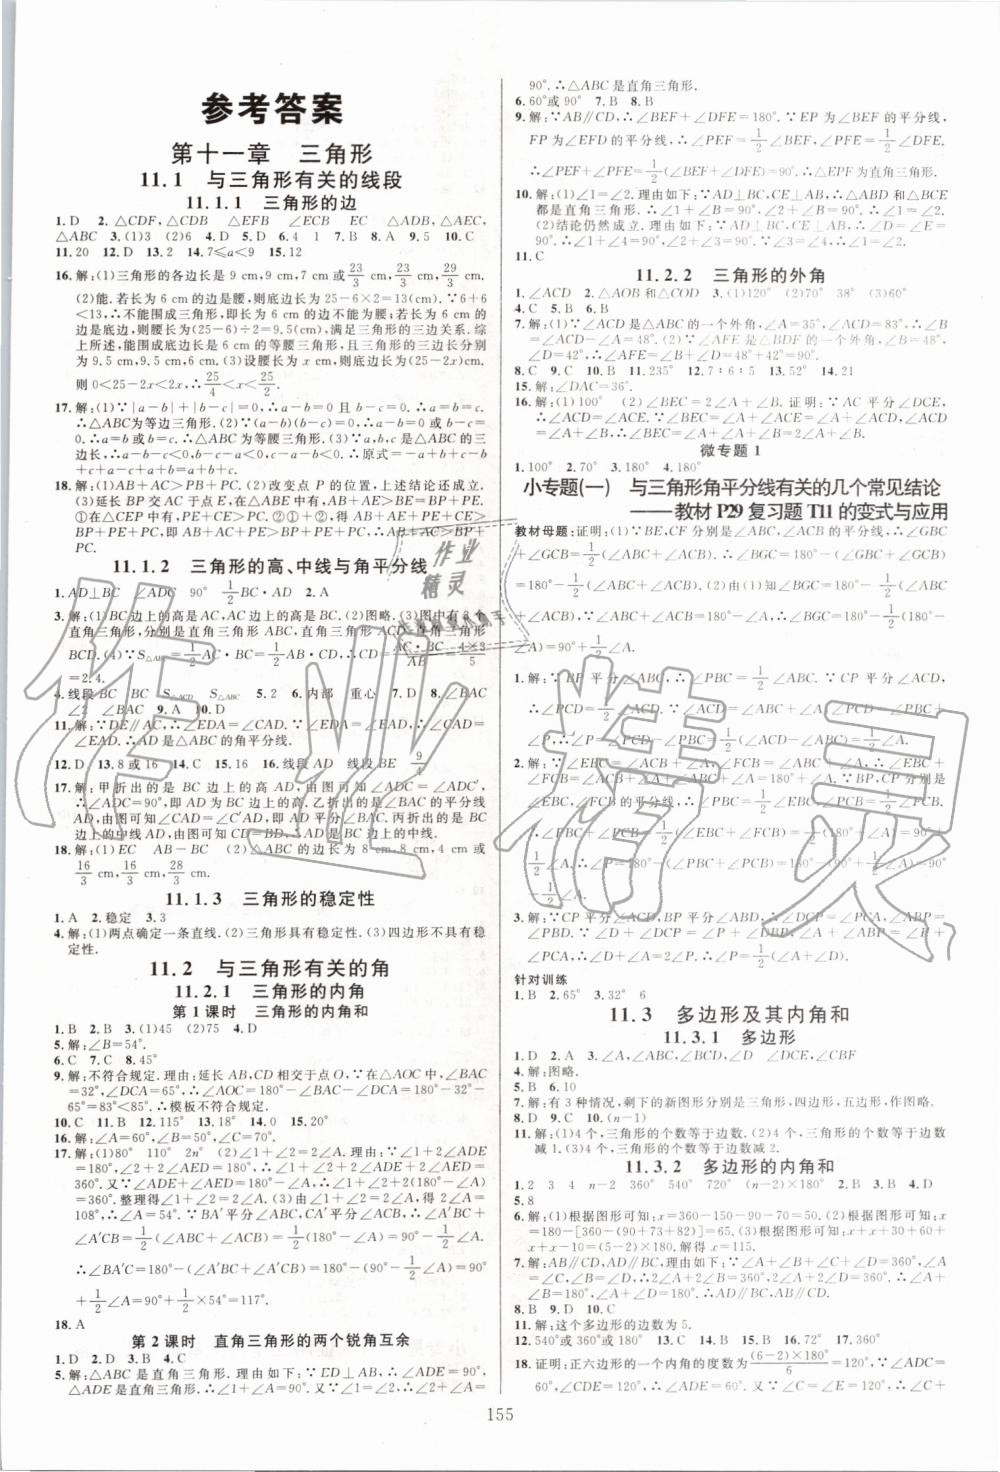 参考答案
第十一章 三角形
11.1 与三角形有关的线段
11.1.1 三角形的边
1.D 2.△CDF,△CDB △EFB ∠ECB EC △ADB,△AEC,
△ABC 3.(1)3 (2)6 4.D 5.D 6.4 1 7.B 8.A 9.5 10.C
11.20 12.D 13.2 14.7≤a<9 15.12
16.解:(1)三角形的各边长是 9 cm,9 cm,7 cm 或 23/3 cm,23/3 cm,29/3 cm.
(2)能.若长为 6 cm 的边是腰,则底边长为 25-6×2=13(cm).∵6+6
<13,∴不能围成三角形,即长为 6 cm 的边不能为腰长;若长为 6 cm
的边是底边,则腰长为(25-6)÷2=9.5(cm),满足三角形的三边关系.综
上所述,能围成底边长是 6 cm 的等腰三角形,且三角形的三边长分别
为 9.5 cm,9.5 cm,6 cm.(3)设腰长为 x cm,则底边长为(25-2x)cm.
则 0<25-2x<2x,∴25/4<x<25/2.
17.解:(1)∵|a-b|+|b-c|=0,∴a-b=0 且 b-c=0.∴a=b=c.
∴△ABC为等边三角形.(2)∵(a-b)(b-c)=0,∴a-b=0 或 b-c=
0.∴a=b或b=c.∴△ABC为等腰三角形.(3)∵a,b,c是△ABC的三
边长,∴a-b-c<0,b-c-a<0,c-a-b<0.∴原式=-a+b+c-b
+c+a-c+a+b=a+b+c.
18.解:(1)AB+AC>PB+PC.(2)改变点 P 的位置,上述结论还成立.
(3)延长 BP交 AC 于点 E,在△ABE 中有,AB+AE>BE=BP+
PE①,在△PEC中有,PE+CE>PC②,①+②,得 AB+AE+PE+
CE>BP+PE+PC.∴AB+AE+CE>BP+PC,即 AB+AC>PB+
PC.
11.1.2 三角形的高、中线与角平分线
1.AD⊥BC ∠ADC 90° 1/2BC·AD 2.B
3.解:(1)BC边上的高是AC,AC边上的高是BC.(2)图略.(3)图中有3个
直角三角形,分别是直角三角形 ABC,直角三角形 ACD,直角三角形
BCD.(4)∵S△ABC=1/2AC·BC=1/2AB·CD,∴CD=AC·BC/AB=4×3/5
=2.4.
4.线段BC BC S△ACD S△ABC 5.2 6.内部 重心 7.D 8.∠BAC
∠2 ∠BAC 9.A 10.D
11.解:∵DE∥AC,∴∠EDA=∠CAD.∵∠EDA=∠EAD,∴∠CAD=
∠EAD.∴AD是△ABC的角平分线.
12.D 13.8或16 14.C 15.16 16.线段AD 线段BE 9/4
17.解:甲折出的是 BC 边上的高 AD,由图可知∠ADC=∠ADC′.
∴∠ADC=90°,即 AD 为 BC 边上的高.乙折出的是∠BAC的平分线
AD,由图可知∠CAD=∠C′AD,即 AD 平分∠BAC.丙折出的是BC
边上的中线AD,由图可知CD=BD,∴AD是BC边上的中线.
18.解:(1)EC AB-BC (2)△ABC的边长为8 cm,8 cm,4 cm或
16/3 cm,16/3 cm,28/3 cm.
11.1.3 三角形的稳定性
1.A 2.稳定 3.3
4.解:(1)两点确定一条直线.(2)三角形具有稳定性.(3)四边形不具有稳
定性.
11.2 与三角形有关的角
11.2.1 三角形的内角
第 1 课时 三角形的内角和
1.B 2.B 3.(1)45 (2)75 4.D
5.解:∠B=54°.
6.C 7.C 8.45°
9.解:不符合规定.理由:延长 AB,CD 相交于点 O,∵在△AOC 中,∠BAC
=32°,∠DCA=65°,∴∠AOC=180°-∠BAC-∠DCA=180°-32°-
65°=83°<85°.∴模板不符合规定.
10.C 11.B 12.115° 13.18° 14.0 15.20°
16.解:∠A=60°,∠B=50°,∠C=70°.
17.解:(1)80° 110° 2n° (2)∠BDC=2∠A.理由:∵∠BDC+
2∠ADE=180°,∠2+2∠AED=180°,∴∠BDC+∠2+2∠ADE+2∠AED=360°.
又∵∠ADE+∠AED=180°-∠A,∴∠BDC+∠2+2(180°-∠A)
=360°.整理得∠2=2∠A.(3)由(1)∠BDC+∠2=2∠A=
108°,∴∠A=54°.∵BA′平分∠ABC,CA′平分∠ACB,∴∠A′BC+
∠A′CB=1/2(∠ABC+∠ACB)=1/2(180°-∠A)=90°-1/2∠A.
∴∠BA′C=180°-(∠A′BC+∠A′CB)=180°-(90°-1/2∠A)=90°
+1/2∠A=90°+1/2×54°=117°.
18.A
第 2 课时 直角三角形的两个锐角互余
1.D 2.B 3.B 4.C
5.解:△ABC是直角三角形.理由如下:∵ED⊥AB,∴∠ADE=90°,
△ADE是直角三角形.∴∠1+∠A=90°.又∵∠1=∠2,∴∠2+∠A=
90°.∴△ABC是直角三角形.
6.60°或90° 7.B 8.B
9.解:∵AB∥CD,∴∠BEF+∠DFE=180°.∵EP 为∠BEF 的平分线,
FP 为∠EFD 的平分线,∴∠PEF=1/2∠BEF,∠PFE=1/2∠DFE.
∴∠PEF+∠PFE=1/2(∠BEF+∠DFE)=90°.∴△EPF为直角三角形.
10.解:(1)∠1=∠2.理由如下:∵AD⊥BC,CE⊥AB,∴△ABD和△BCE
都是直角三角形.∴∠1+∠B=90°,∠2+∠B=90°.∴∠1=∠2.
(2)结论仍然成立.理由如下:∵AD⊥BC,CE⊥AB,∴∠D=∠E=
90°.∴∠1+∠4=90°,∠2+∠3=90°.∵∠3=∠4,∴∠1=∠2.
11.C
11.2.2 三角形的外角
1.∠ACD 2.△AOB和△COD 3.(1)120° (2)70° 38° (3)60°
4.C 5.B 6.B
7.解:(1)∵∠ACD是△ABC的一个外角,∠A=35°,∠ACD=83°,∴∠B
=∠ACD-∠A=48°.(2)∵∠AFE 是△BDF 的一个外角,∠B=48°,
∠D=42°,∴∠AFE=∠B+∠D=48°+42°=90°.
8.C 9.C 10.B 11.235° 12.7∶6∶5 13.52° 14.21
15.解:∠DAC=36°.
16.解:(1)100° (2)∠BEC=2∠A+∠B.证明:∵AC平分∠DCE,
∴∠ACD=∠ACE.∵∠BEC=∠A+∠ACE=∠A+∠ACD,∠ACD=
∠A+∠B,∴∠BEC=∠A+∠A+∠B=2∠A+∠B.
微专题 1
1.100° 2.70° 3.180° 4.180°
小专题(一) 与三角形角平分线有关的几个常见结论
——教材 P29 复习题 T11 的变式与应用
教材母题:证明:(1)∵BE,CF分别是∠ABC,∠ACB的平分线,∴∠GBC
+∠GCB=1/2(∠ABC+∠ACB).∴∠BGC=180°-(∠GBC+∠GCB)=
180°-1/2(∠ABC+∠ACB).(2)由(1)知∠BGC=180°-1/2(∠ABC+
∠ACB).∵∠ABC+∠ACB=180°-∠A,∴∠BGC=180°-1/2(180°-
∠A)=90°+1/2∠A.
1.解:∵BP 平分∠ABC,∴∠PBC=1/2∠ABC.∵CP 平分∠ACD,
∴∠PCD=1/2∠ACD.∴∠BPC=∠PCD-∠PBC=1/2∠ACD-
1/2∠ABC=1/2(∠ACD-∠ABC)=1/2∠A.
3.解:∵CP平分∠ACD,BP平分∠ABD,∴∠DCP=∠PCA,∠ABP=
针对训练
1.B 2.65° 3.32° 6
11.3 多边形及其内角和
11.3.1 多边形
1.D 2.A 3.∠A,∠ABC,∠BCD,∠D,∠ADC ∠DCE,∠CBF
4.解:图略.
5.B 6.10
7.解:有3种情况,剩下的新图形分别是三角形,四边形,五边形,作图略.
8.D 9.C 10.(n-1)
11.解:(1)4个,三角形的个数等于边数.(2)4个,三角形的个数等于边数
减1.(3)4个,三角形的个数等于边数减2.
11.3.2 多边形的内角和
1.2 3 4 n-2 360° 540° 720° (n-2)×180° 2.B 3.B 4.D
5.8
6.解:(1)根据图形可知:x=360-150-90-70=50.(2)根据图形可知:x
=180-[360-(90+73+82)]=65.(3)根据图形可知:x+x+30+60+
x+x-10=(5-2)×180.解得 x=115.
8.B 9.D 10.C
11.解:这个多边形的边数为5.
12.540°或360°或180° 13.C 14.B 15.A 16.72° 17.360°
18.证明:正六边形的一个内角的度数为(6-2)×180°/6=120°,∵∠ADC=
∠DCB=∠B=120°,∴∠DAB=360°-∠ADC-∠DCB-∠B
155
作业精灵
作业
精灵